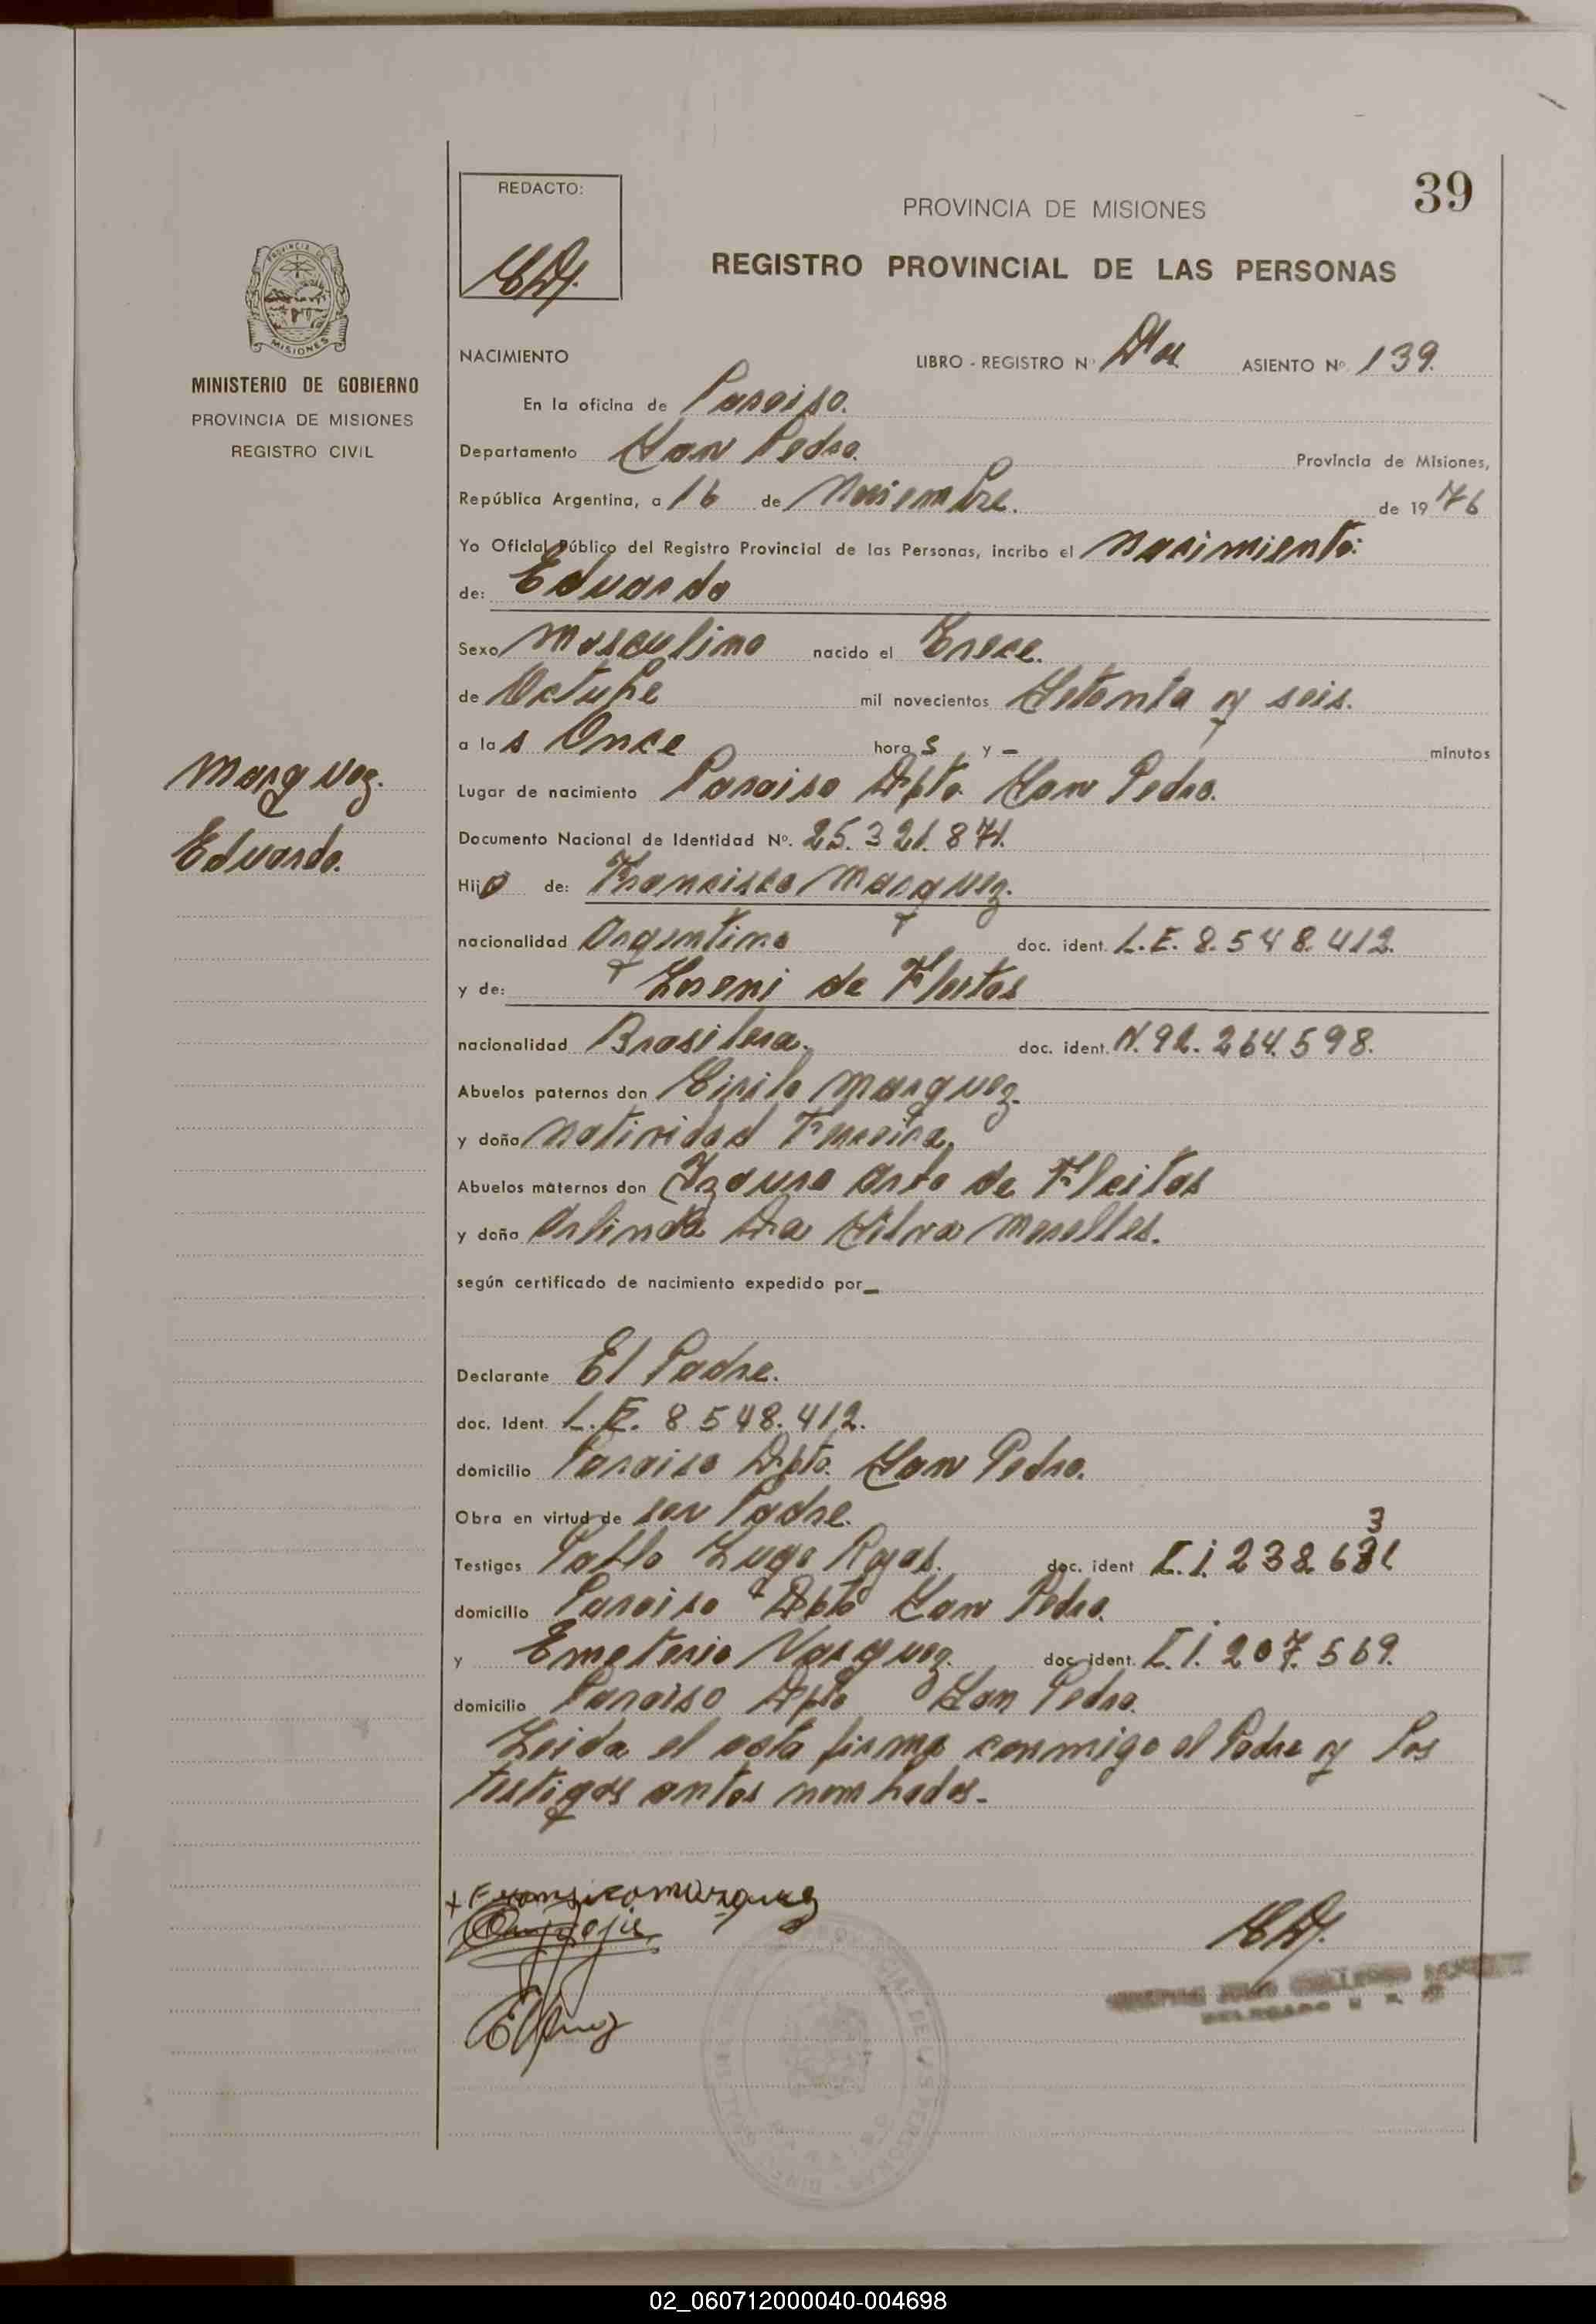 39
REDACTO:
PROVINCIA DE MISIONES
REGISTRO PROVINCIAL DE LAS PERSONAS
PROVINCIA DE
MISIONES
MINISTERIO DE GOBIERNO
PROVINCIA DE MISIONES
REGISTRO CIVIL
Marquez.
Eduardo.
NACIMIENTO LIBRO - REGISTRO Nº Dos ASIENTO Nº 139.
En la oficina de Paraiso.
Departamento San Pedro. Provincia de Misiones,
República Argentina, a 16 de Noviembre. de 1976
Yo Oficial Público del Registro Provincial de las Personas, incribo el nacimiento:
de: Eduardo
Sexo masculino nacido el Trece.
de Octubre mil novecientos Setenta y seis.
a las Once horas y - minutos
Lugar de nacimiento Paraiso Dpto. San Pedro.
Documento Nacional de Identidad Nº. 25.321.871.
Hijo de: Francisco Marquez.
nacionalidad Argentino doc. ident. L.E. 8.548.412.
y de: Loreni de Fleitas
nacionalidad Brasilera. doc. ident. N.92.264.598.
Abuelos paternos don Cirilo Marquez.
y doña Natividad Ferreira.
Abuelos maternos don de Fleitas
y doña Orlinda Da Silva Merelles.
según certificado de nacimiento expedido por -
Declarante El Padre.
doc. Ident. L.E. 8.548.412.
domicilio Paraiso Dpto. San Pedro.
Obra en virtud de ser Padre.
3
Testigos Pablo Lugo Rojas. doc. ident C.I. 238.631
domicilio Paraiso Dpto San Pedro.
y Emeterio Vasquez. doc. ident. C.I. 207.569.
domicilio Paraiso Dpto San Pedro.
Leida el acta firma conmigo el Padre y los
testigos antes nombrados.-
+ Fransico marquez
DELEGADO
02_060712000040-004698